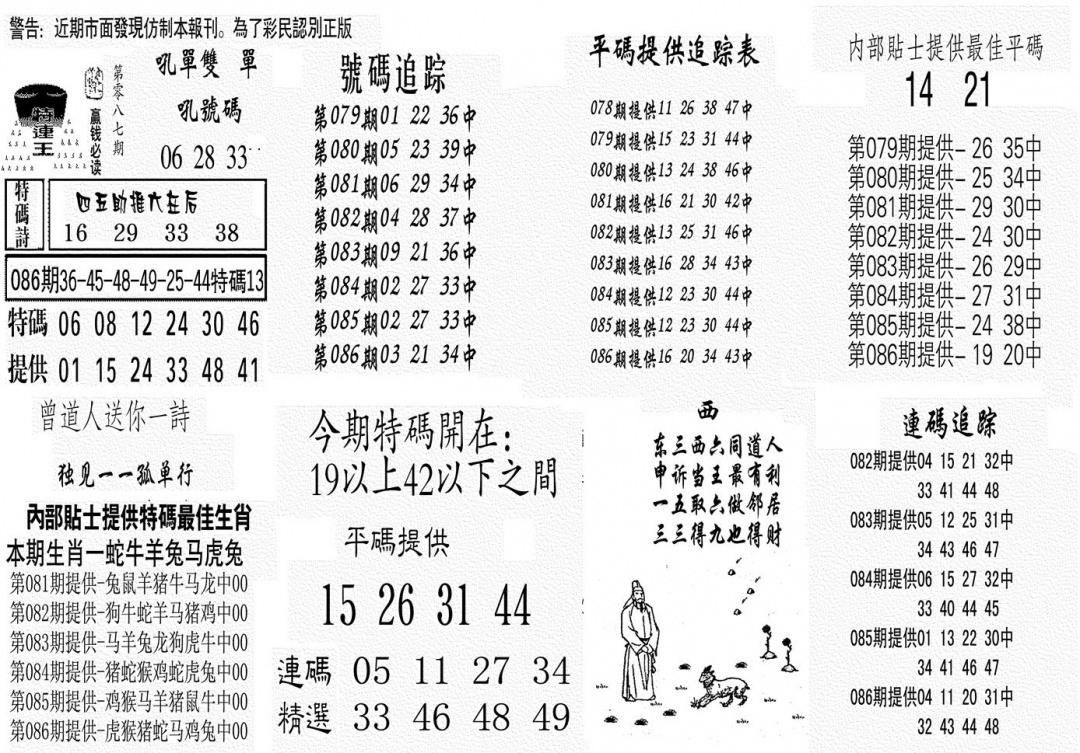 警告: 近期市面發現仿制本報刊。為了彩民認別正版
特連王
赢钱必读
第零八七期
吼單雙 單
吼號碼
06 28 33
特碼詩
四五助推六左后
16 29 33 38
086期36-45-48-49-25-44特碼13
特碼 06 08 12 24 30 46
提供 01 15 24 33 48 41
號碼追踪
第079期01 22 36中
第080期05 23 39中
第081期06 29 34中
第082期04 28 37中
第083期09 21 36中
第084期02 27 33中
第085期02 27 33中
第086期03 21 34中
平碼提供追踪表
078期提供11 26 38 47中
079期提供15 23 31 44中
080期提供13 24 38 46中
081期提供16 21 30 42中
082期提供13 25 31 46中
083期提供16 28 34 43中
084期提供12 23 30 44中
085期提供12 23 30 44中
086期提供16 20 34 43中
内部貼士提供最佳平碼
14 21
第079期提供- 26 35中
第080期提供- 25 34中
第081期提供- 29 30中
第082期提供- 24 30中
第083期提供- 26 29中
第084期提供- 27 31中
第085期提供- 24 38中
第086期提供- 19 20中
曾道人送你一詩
独见一一孤单行
內部貼士提供特碼最佳生肖
本期生肖一蛇牛羊兔马虎兔
第081期提供-兔鼠羊猪牛马龙中00
第082期提供-狗牛蛇羊马猪鸡中00
第083期提供-马羊兔龙狗虎牛中00
第084期提供-猪蛇猴鸡蛇虎兔中00
第085期提供-鸡猴马羊猪鼠牛中00
第086期提供-虎猴猪蛇马鸡兔中00
今期特碼開在:
19以上42以下之間
平碼提供
15 26 31 44
連碼 05 11 27 34
精選 33 46 48 49
西
东三西六同道人
申诉当王最有利
一五取六做邻居
三三得九也得财
連碼追踪
082期提供04 15 21 32中
33 41 44 48
083期提供05 12 25 31中
34 43 46 47
084期提供06 15 27 32中
33 40 44 45
085期提供01 13 22 30中
34 41 46 47
086期提供04 11 20 31中
32 43 44 48